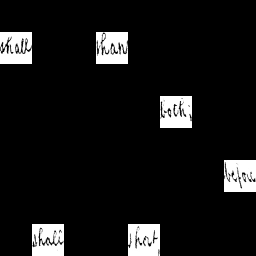 shall than
both;
before
shall short